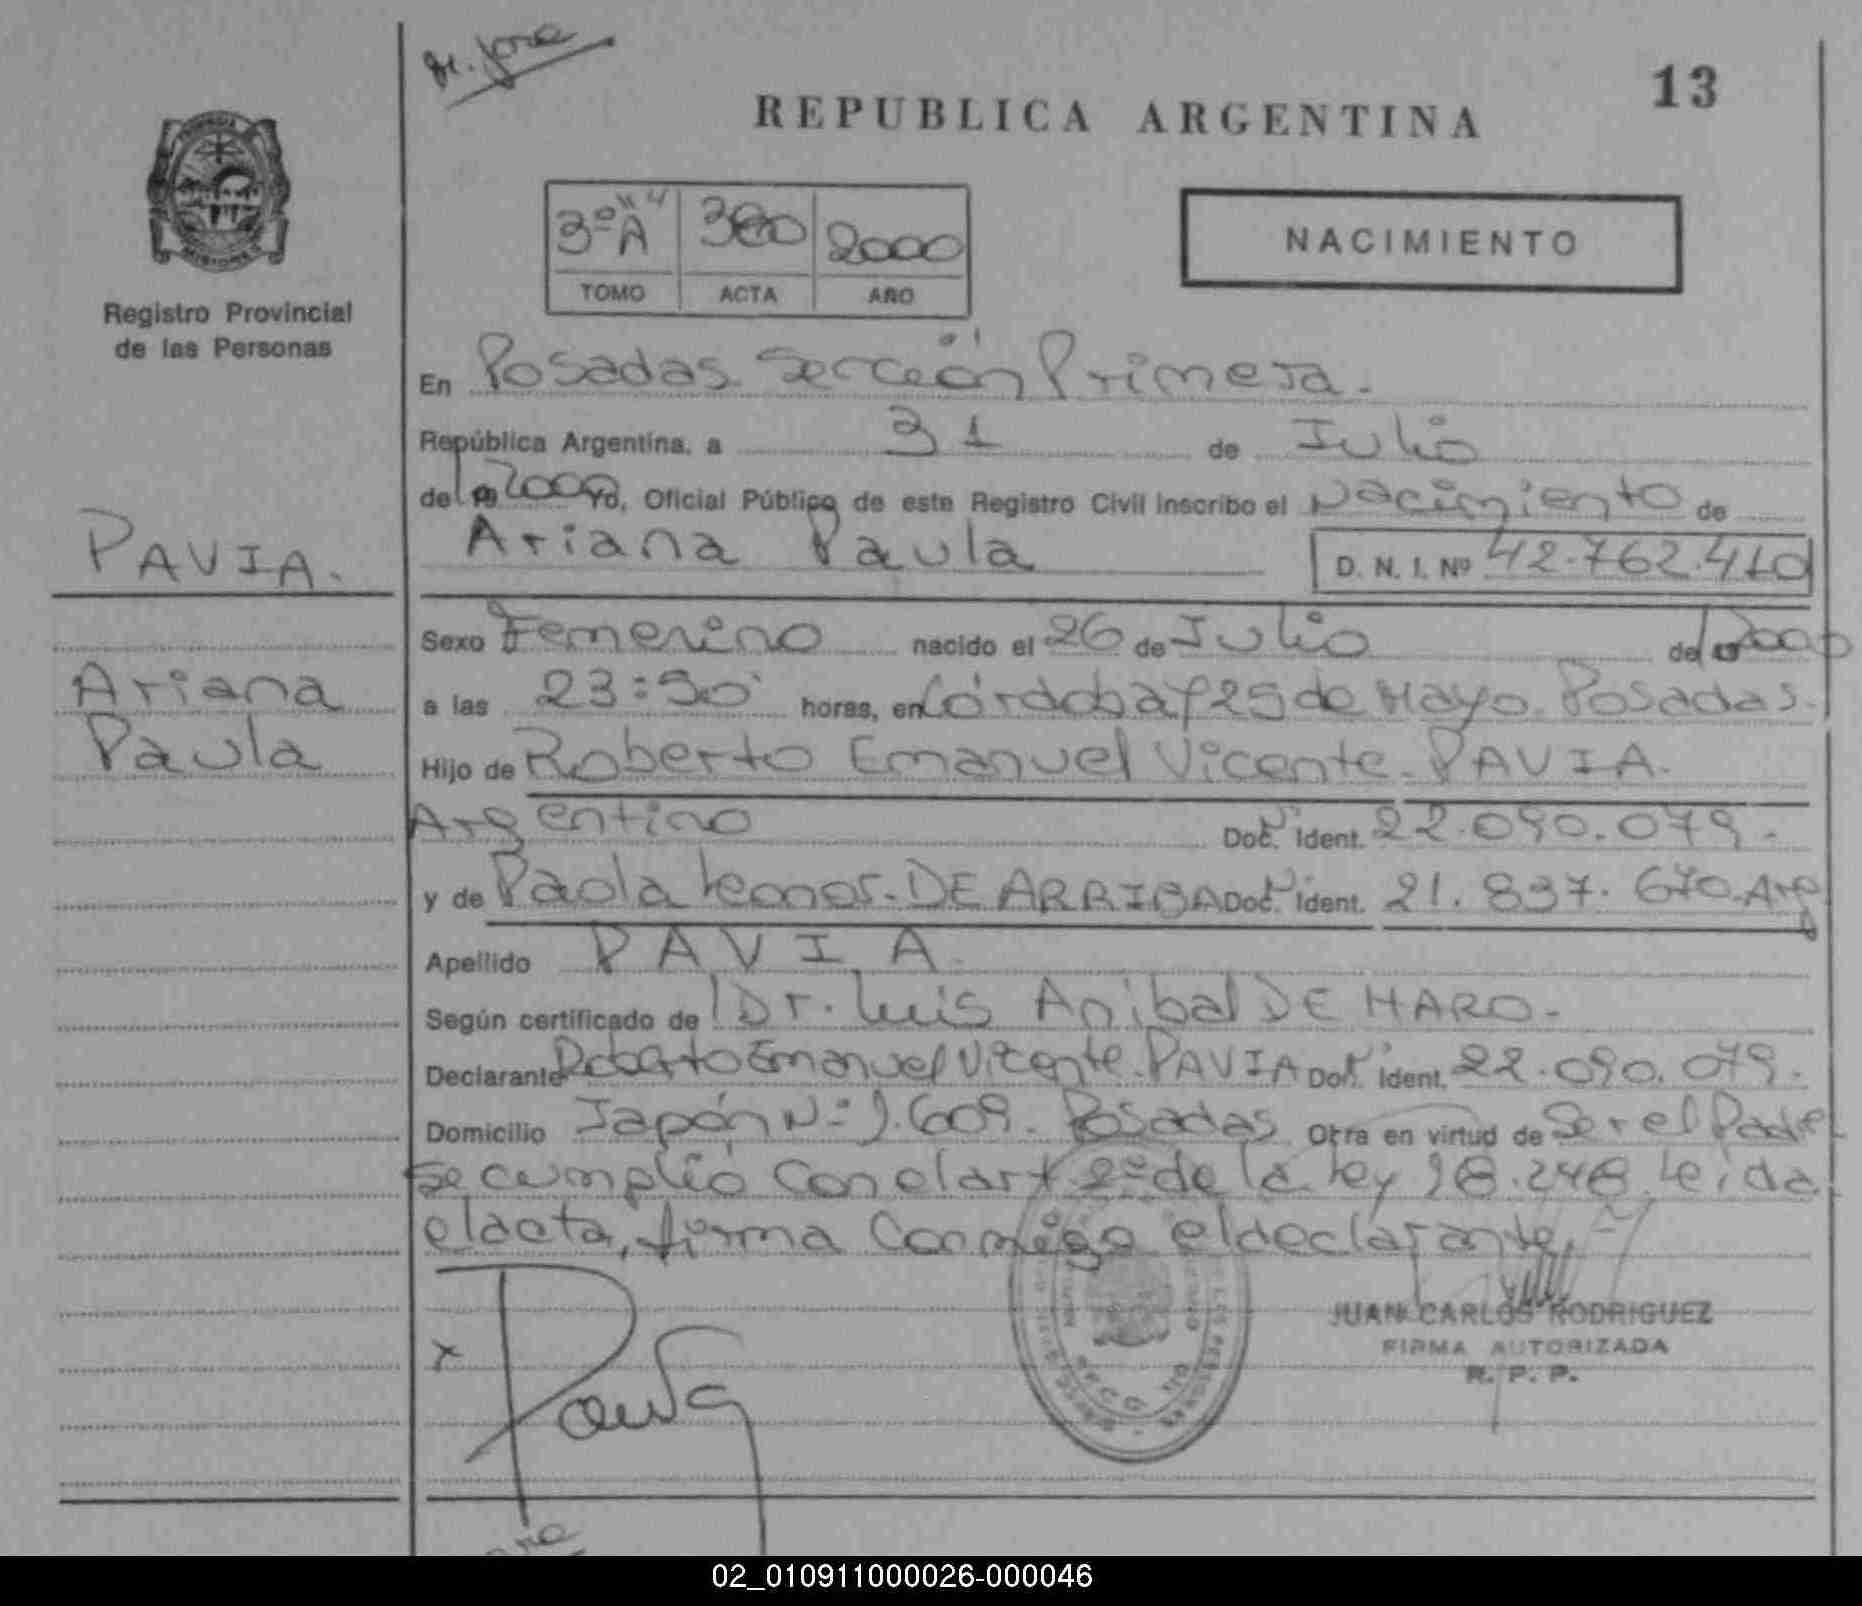 13
REPUBLICA ARGENTINA
3º "A" 380 2000
TOMO ACTA AÑO
NACIMIENTO
Registro Provincial
de las Personas
En Posadas Sección Primera.
República Argentina, a 31 de Julio
de 2000 Yo, Oficial Público de este Registro Civil inscribo el Nacimiento de
Ariana Paula D. N. I. Nº 42.762.410
PAVIA.
Ariana
Paula
Sexo Femenino nacido el 26 de Julio de 2000
a las 23:50 horas, en Córdoba y 25 de Mayo. Posadas.
Hijo de Roberto Emanuel Vicente. PAVIA.
Argentino Doc. Ident. 22.090.079.
y de Paola Leonor. DE ARRIBA Doc. Ident. 21.837.670. Arg
Apellido PAVIA.
Según certificado de Dr. Luis Anibal DE HARO.
Declarante Roberto Emanuel Vicente. PAVIA Doc. Ident. 22.090.079.
Domicilio Japón Nº 1.609. Posadas Obra en virtud de Ser el Padre
se cumplió con el art 2º de la Ley 18.248. Leida
el acta, firma conmigo el declarante.
x Pavia
JUAN CARLOS RODRIGUEZ
FIRMA AUTORIZADA
R. P. P.
02_010911000026-000046